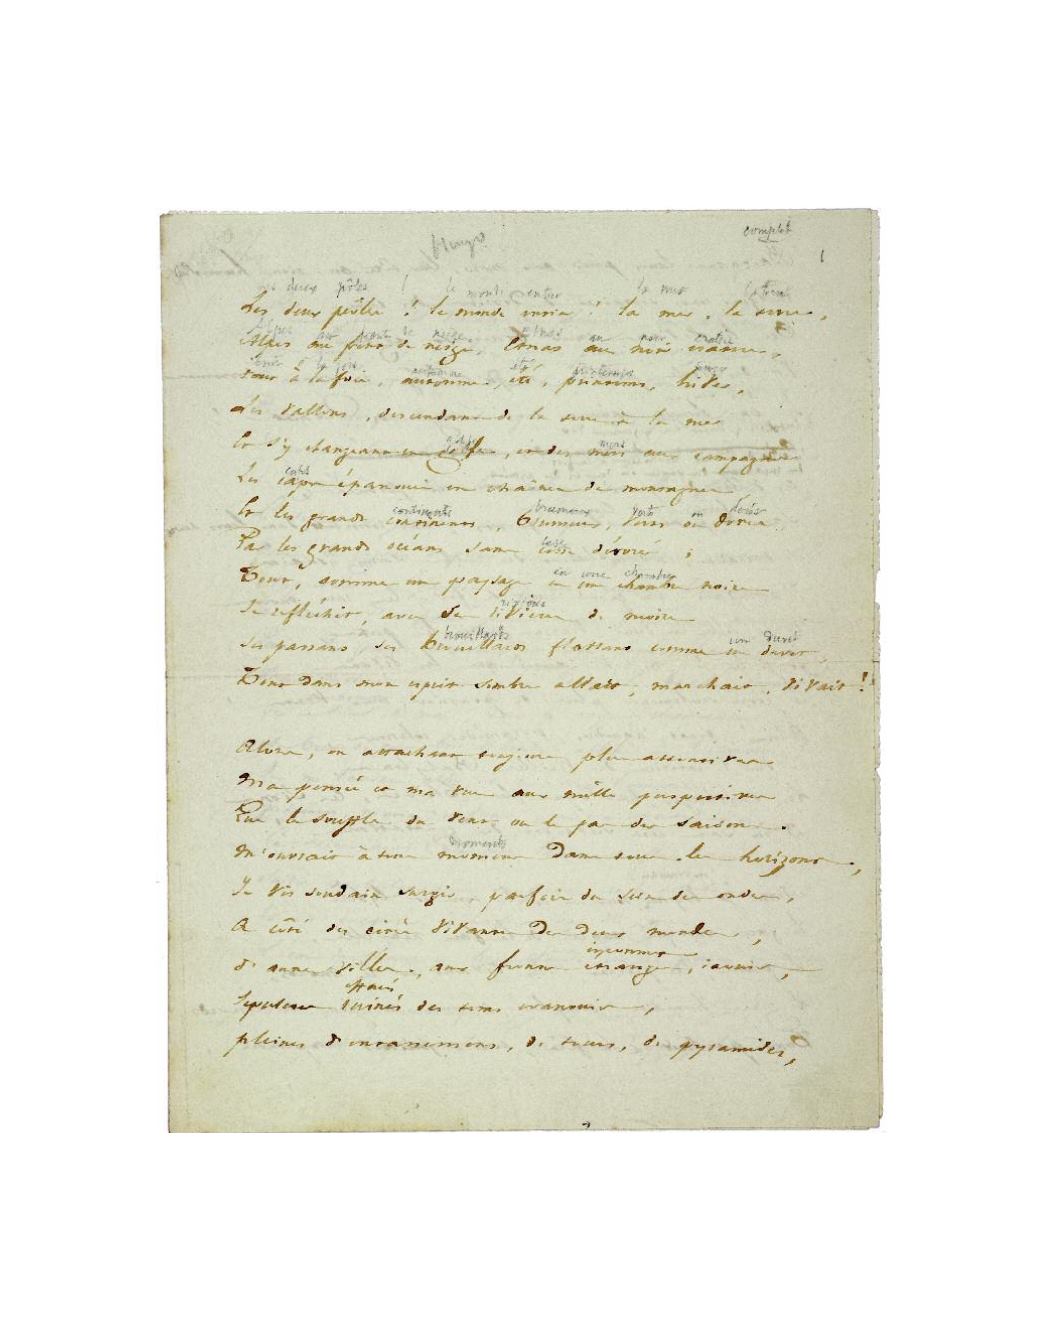 Hugo
complet
1
les deux pôles ! le monde entier la mer la terre
Les deux pôles ! le monde entier ! la mer, la terre,
Alpes aux fronts de neige, Etnas au noir cratère
Alpes aux fronts de neige, Etnas au noir cratère,
tout à la fois automne été printemps hiver
Tout à la fois, automne, été, printemps, hiver,
Les vallons, descendant de la terre à la mer
golfe mers
Et s'y changeant en golfe, et des mers aux campagnes
caps
Les caps épanouis en chaînes de montagnes
continents brumeux verts ou dorés
Et les grands continents, brumeux, verts ou dorés
cesse
Par les grands océans sans cesse dévorés ;
en une chambre
Tout, comme un paysage en une chambre noire
rivières
Se réfléchit, avec ses rivières de moire
brouillards un duvet
Ses passants, ses brouillards flottant comme un duvet,
Tout dans mon esprit sombre allait, marchait, vivait !
Alors, en attachant toujours plus attentives
Ma pensée et ma vue aux mille perspectives
Que le souffle du vent ou le pas des saisons
moments
M'ouvrait à tous moments dans tous les horizons,
Je vis soudain surgir, parfois du sein des ondes,
A côté des cités vivantes des deux mondes,
inconnues
D'autres villes, aux fronts étranges, inouïs,
Sépulcres ruinés des temps évanouis,
pleines d'entassements, de tours, de pyramides,